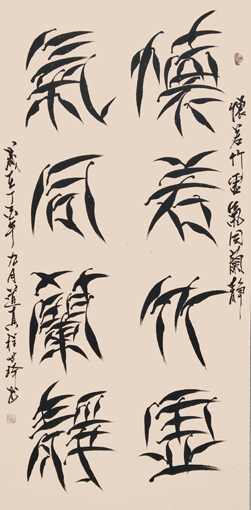 懷若竹虛氣同蘭靜
懷若竹虛
氣同蘭靜
歲在丁亥年九月